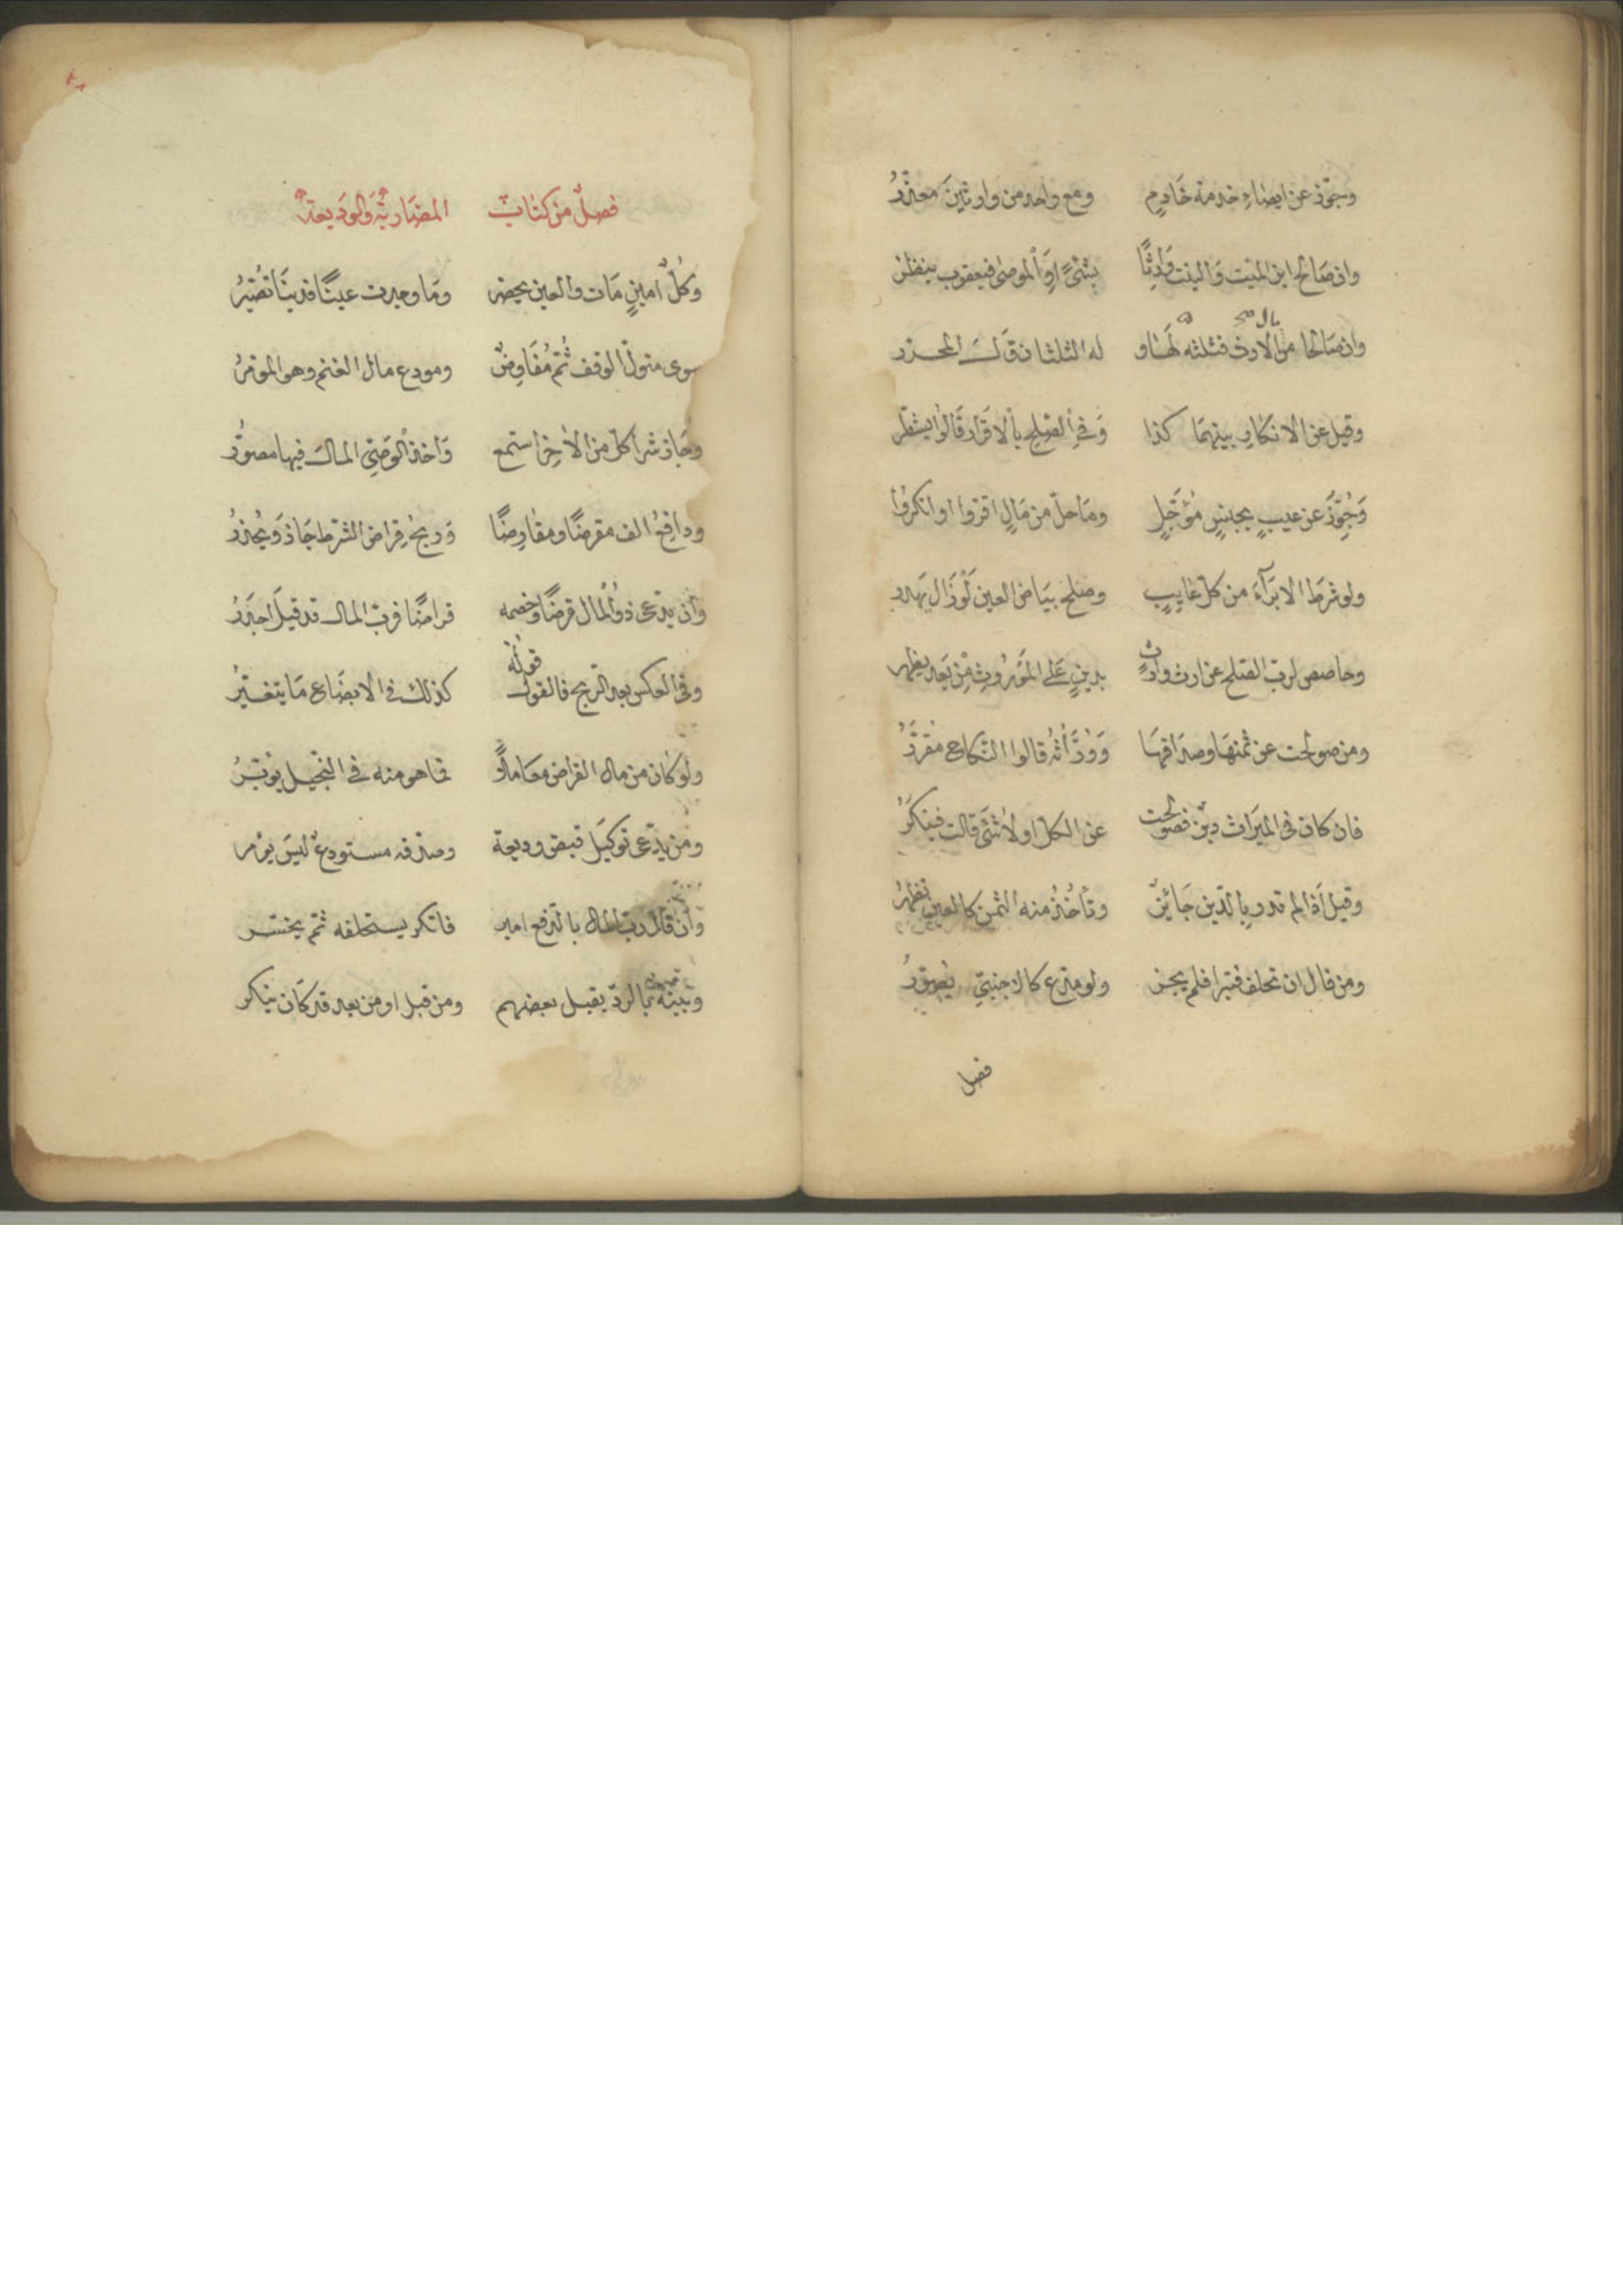 وجوّز عن ايصاءِ خدمة خَادِمٍ ومع واحد من وارثينَ معذّرُ
وان صَالح ابن الميّت وَالبنت وَارثًا بشئٍ اَوِ الموصٰى فيعقوب ينظر
وان صَالحا من مال الارث فثلثه لهَا و له الثلثان قَالَ المحرر
وقيل عن الانكارِ بينهمَا كذا وَفي الصّلح بالاقرَار قَالوا يشطّر
وَجُوّزَ عن عيبٍ بجنسٍ مُؤَجّلٍ ومَا حلّ من مَالٍ اقروا او انكروا
ولو شرَط الابرَآءَ من كل غايبٍ وصلح بيَاض العين لَوْ زَال يهدر
وحاصص لرب الصّلح عن ارث وارثٍ بدينٍ عَلَى المَوْرُوثِ مِنْ بَعد يظهر
ومن صولحت عن ثمنهَا وصدَاقهَا وَوُرَّاثُه قالوا النّكاح مقرّرُ
فان كان في الميرَاث دين فصولحت عن الكل او لا شَئَ قالت فينكَرُ
وقيل اذا لم تدر بالدّين جَائزٌ وتأخُذُ منه الثمن كالعين تظهرُ
ومن قال ان تحلف فتبرا فلم يجز ولو مدّع كالاجنبيّ يصوّرُ
فصل
فصلٌ من كتاب المضاربة وَالوَديعة
وَكلّ امينٍ مَات والعين يحصر ومَا وجدت عينًا فدينًا تصَيّرُ
سوى متولّ الوقف ثُمّ مُفَاوضٌ ومودع مال الغنم وهو المؤمرُ
وجَاز شرا كلّ من الاخر استمع وَاخذ الوَصيّ المالَ فيها مصوّرُ
ودافِعُ الف مقرضًا ومقارضًا وَربحُ قِراض الشرط جَاز وَيُحذرُ
وان يدّعى ذو المال قرضًا وخصمه قراضًا فربّ المال قد قيلَ اجدَرُ
وفى العكس بعد الربح فالقول قولُهُ كذلك في الابضَاع مَا يتغيّرُ
ولو كان من مال القراض معَاملًا فما هو منه في التّجيل يوثرُ
ومن يدّعى توكيلَ قبض وديعة وصدّقه مستودعٌ ليسَ يؤمر
وان قال ربّ المال بالدّفع امر فانكر يستحلفه ثمّ يخسر
وبينة بالردّ يقبل بعضهم ومن قبل او من بعد قد كَان ينكر